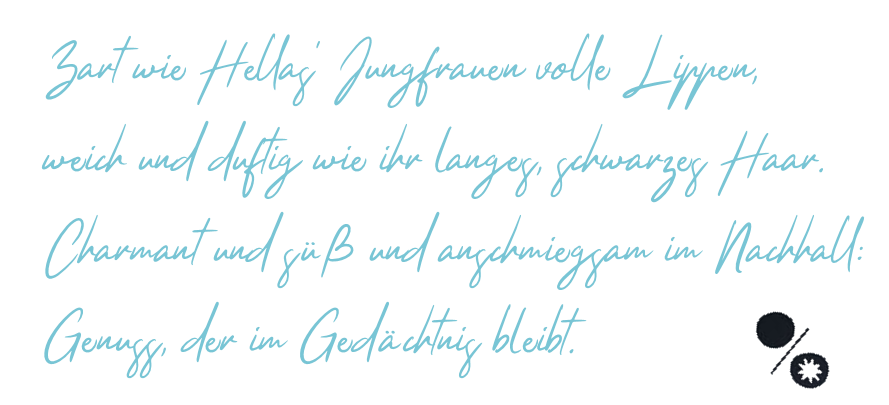 Zart wie Hellas' Jungfrauen volle Lippen,
weich und duftig wie ihr langes, schwarzes Haar.
Charmant und süß und anschmiegsam im Nachhall:
Genuss, der im Gedächtnis bleibt.